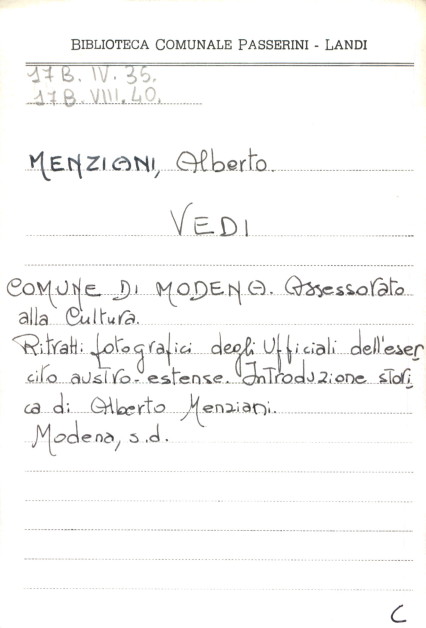 BIBLIOTECA COMUNALE PASSERINI - LANDI
17 B. IV. 35.
17 B. VIII. 40.
MENZIANI, Alberto.
VEDI
COMUNE DI MODENA. Assessorato
alla Cultura.
Ritratti fotografici degli Ufficiali dell'eser
cito austro-estense. Introduzione stori
ca di Alberto Menziani.
Modena, s.d.
C